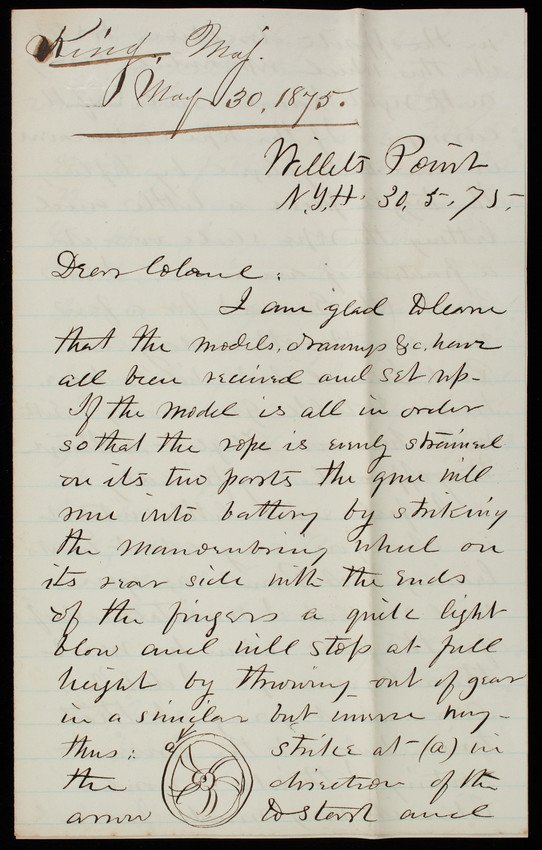 King, Maj.
May 30, 1875.
Willets Point
N.Y.H. 30. 5. 75.
Dear Colonel:
I am glad to learn
that the models, drawings &c, have
all been received and set up-
If the model is all in order
so that the rope is evenly strained
on its two parts the gun will
run into battery by striking
the manoeuvring wheel on
its rear side with the ends
of the fingers a quite light
blow and will stop at full
height by throwing out of gear
in a similar but inverse way-
thus: a strike at (a) in
the direction of the
arrow to start and